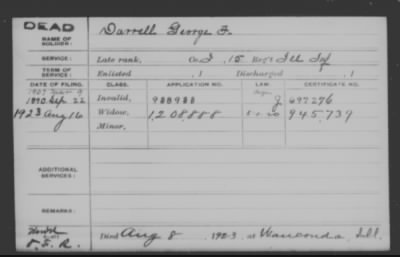 DEAD
NAME OF SOLDIER: Darrell George F.
SERVICE: Late rank, Co I, 15 Reg't Ill Inf
TERM OF SERVICE: Enlisted , 1 Discharged , 1
DATE OF FILING. CLASS. APPLICATION NO. LAW. CERTIFICATE NO.
1890 Sep 22 Invalid, 908988 J 697276
1923 Aug 16 Widow, 1,208,888 945,739
Minor,
ADDITIONAL SERVICES:
REMARKS:
Died Aug 8, 1923, at Wauconda, Ill.